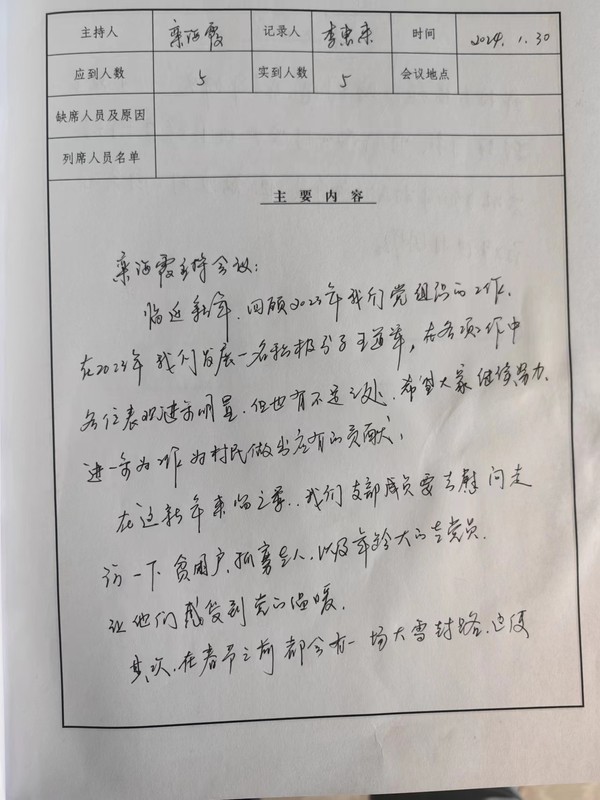 主持人 栾海霞 记录人 李惠来 时间 2024.1.30
应到人数 5 实到人数 5 会议地点
缺席人员及原因
列席人员名单
主要内容
栾海霞主持会议:
临近新年,回顾2023年我们党组织的工作,
在2023年我们发展一名积极分子王道军,在各项工作中
各位表现进步明显,但也有不足之处,希望大家继续努力,
进一步为工作为村民做出应有的贡献,
在这新年来临之际,我们支部成员要去慰问走
访一下贫困户,孤寡老人,以及年龄大的老党员,
让他们感受到党的温暖,
其次,在春节之前都会有一场大雪封路,